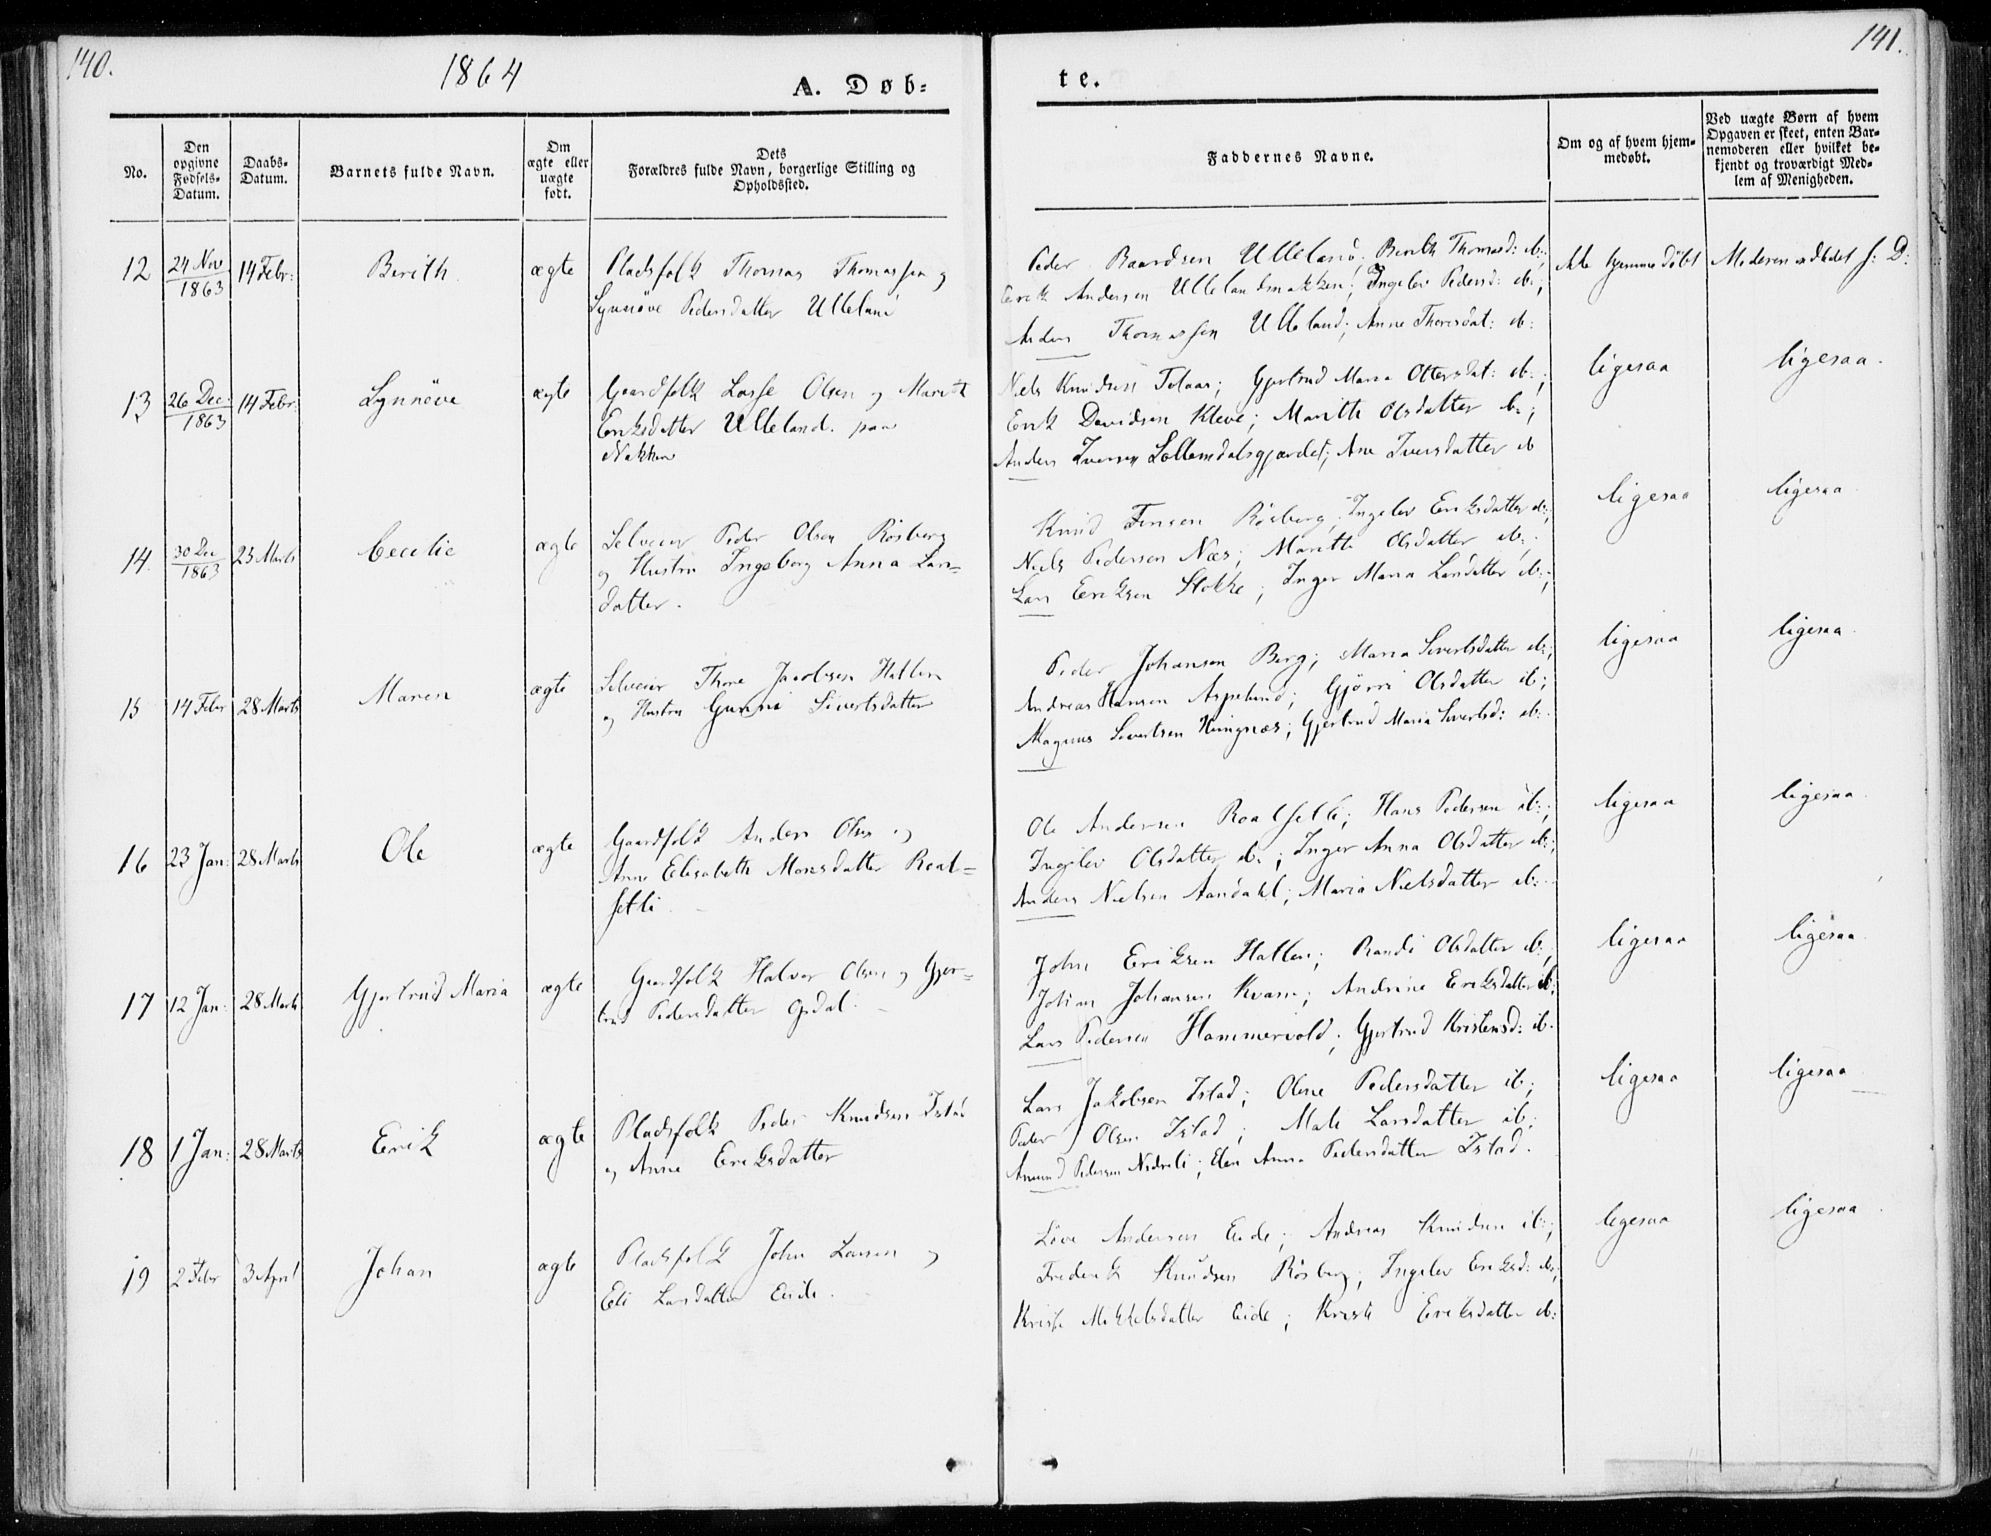 140.
1864
A. Døb=
te.
141.
No.
Den opgivne Fødsels-Datum.
Daabs-Datum.
Barnets fulde Navn.
Om ægte eller uægte født.
Dets Forældres fulde Navn, borgerlige Stilling og Opholdssted.
Faddernes Navne.
Om og af hvem hjemmedøbt.
Ved uægte Børn af hvem Opgaven er skeet, enten Barnemoderen eller hvilket bekjendt og troværdigt Medlem af Menigheden.
12 24 Nov 1863 14 Febr: Berith ægte Pladsfolk Thomas Thomassen og
Synnöve Pedersdatter Ulleland
Peder Baardsen Ulleland; Berith Thomasd: ib:;
Erik Andersen Ullelandnakken; Ingelev Pedersd: ib:;
Anders Thomassen Ulleland; Anne Thoresdat: ib:
ikke hjemmedöbt
Moderen indledet s: D:
13 26 Dec: 1863 14 Febr: Synnöve ægte Gaardfolk Lasse Olsen og Marith
Eriksdatter Ulleland paa
Nakken
Niels Knudsen Talaas; Gjertrud Maria Ottersdat: ib:;
Erik Davidsen Kleve; Marith Olsdatter ib:;
Anders Iversen Sollemdalsgjærdet; Ane Iversdatter ib
ligesaa
ligesaa.
14. 30 Dec 1863 25 Marts Cecelie ægte Selveier Peder Olsen Rösberg
og Hustru Ingeborg Anna Lars=
datter.
Knud Jensen Rösberg; Ingelev Eriksdatter ib:;
Niels Pedersen Næs; Marith Olsdatter ib:;
Lars Eriksen Stokke; Inger Maria Larsdatter ib:;
ligesaa
ligesaa
15 14 Febr 28 Marts Maren ægte Selveier Thore Jacobsen Hallen
og Hustru Guruni Sivertsdatter
Peder Johansen Berg; Maria Sivertsdatter ib:;
Andreas Hansen Aspelund; Gjörri Olsdatter ib:;
Magnus Sivertsen Hungnæs; Gjertrud Maria Sivertsd: ib:.
ligesaa
ligesaa.
16 23 Jan: 28 Marts Ole ægte Gaardfolk Anders Olsen og
Anne Elisabeth Monsdatter Roal=
setli
Ole Andersen Roalsetli; Hans Pedersen ib:;
Ingelev Olsdatter ib:; Inger Anna Olsdatter ib:;
Anders Nielsen Aandahl; Maria Nielsdatter ib:
ligesaa
ligesaa.
17 12 Jan: 28 Marts Gjertrud Maria ægte Gaardfolk Halvor Olsen og Gjer=
trud Pedersdatter Opdal.
John Eriksen Hallen; Randi Olsdatter ib:;
Johan Johansen Kvam; Andrine Eriksdatter ib:
Lars Pedersen Hammervold; Gjertrud Kristensd: ib.
ligesaa
ligesaa.
18 1 Jan: 28 Marts Erik ægte Pladsfolk Peder Knudsen Istad
og Anne Eriksdatter
Lars Jakobsen Istad; Olene Pedersdatter ib;
Peder Olsen Istad; Male Larsdatter ib:
Amund Pedersen Nedreli; Elen Anna Pedersdatter Istad.
ligesaa
ligesaa
19 2 Febr 3 April Johan ægte Pladsfolk John Larsen og
Eli Larsdatter Eide.
Löve Andersen Eide; Andreas Knudsen ib:;
Frederik Knudsen Rösberg; Ingelev Eriksd: ib:;
Mikkelsdatter Eide; Kristi Eriksdatter ib:
ligesaa
ligesaa.